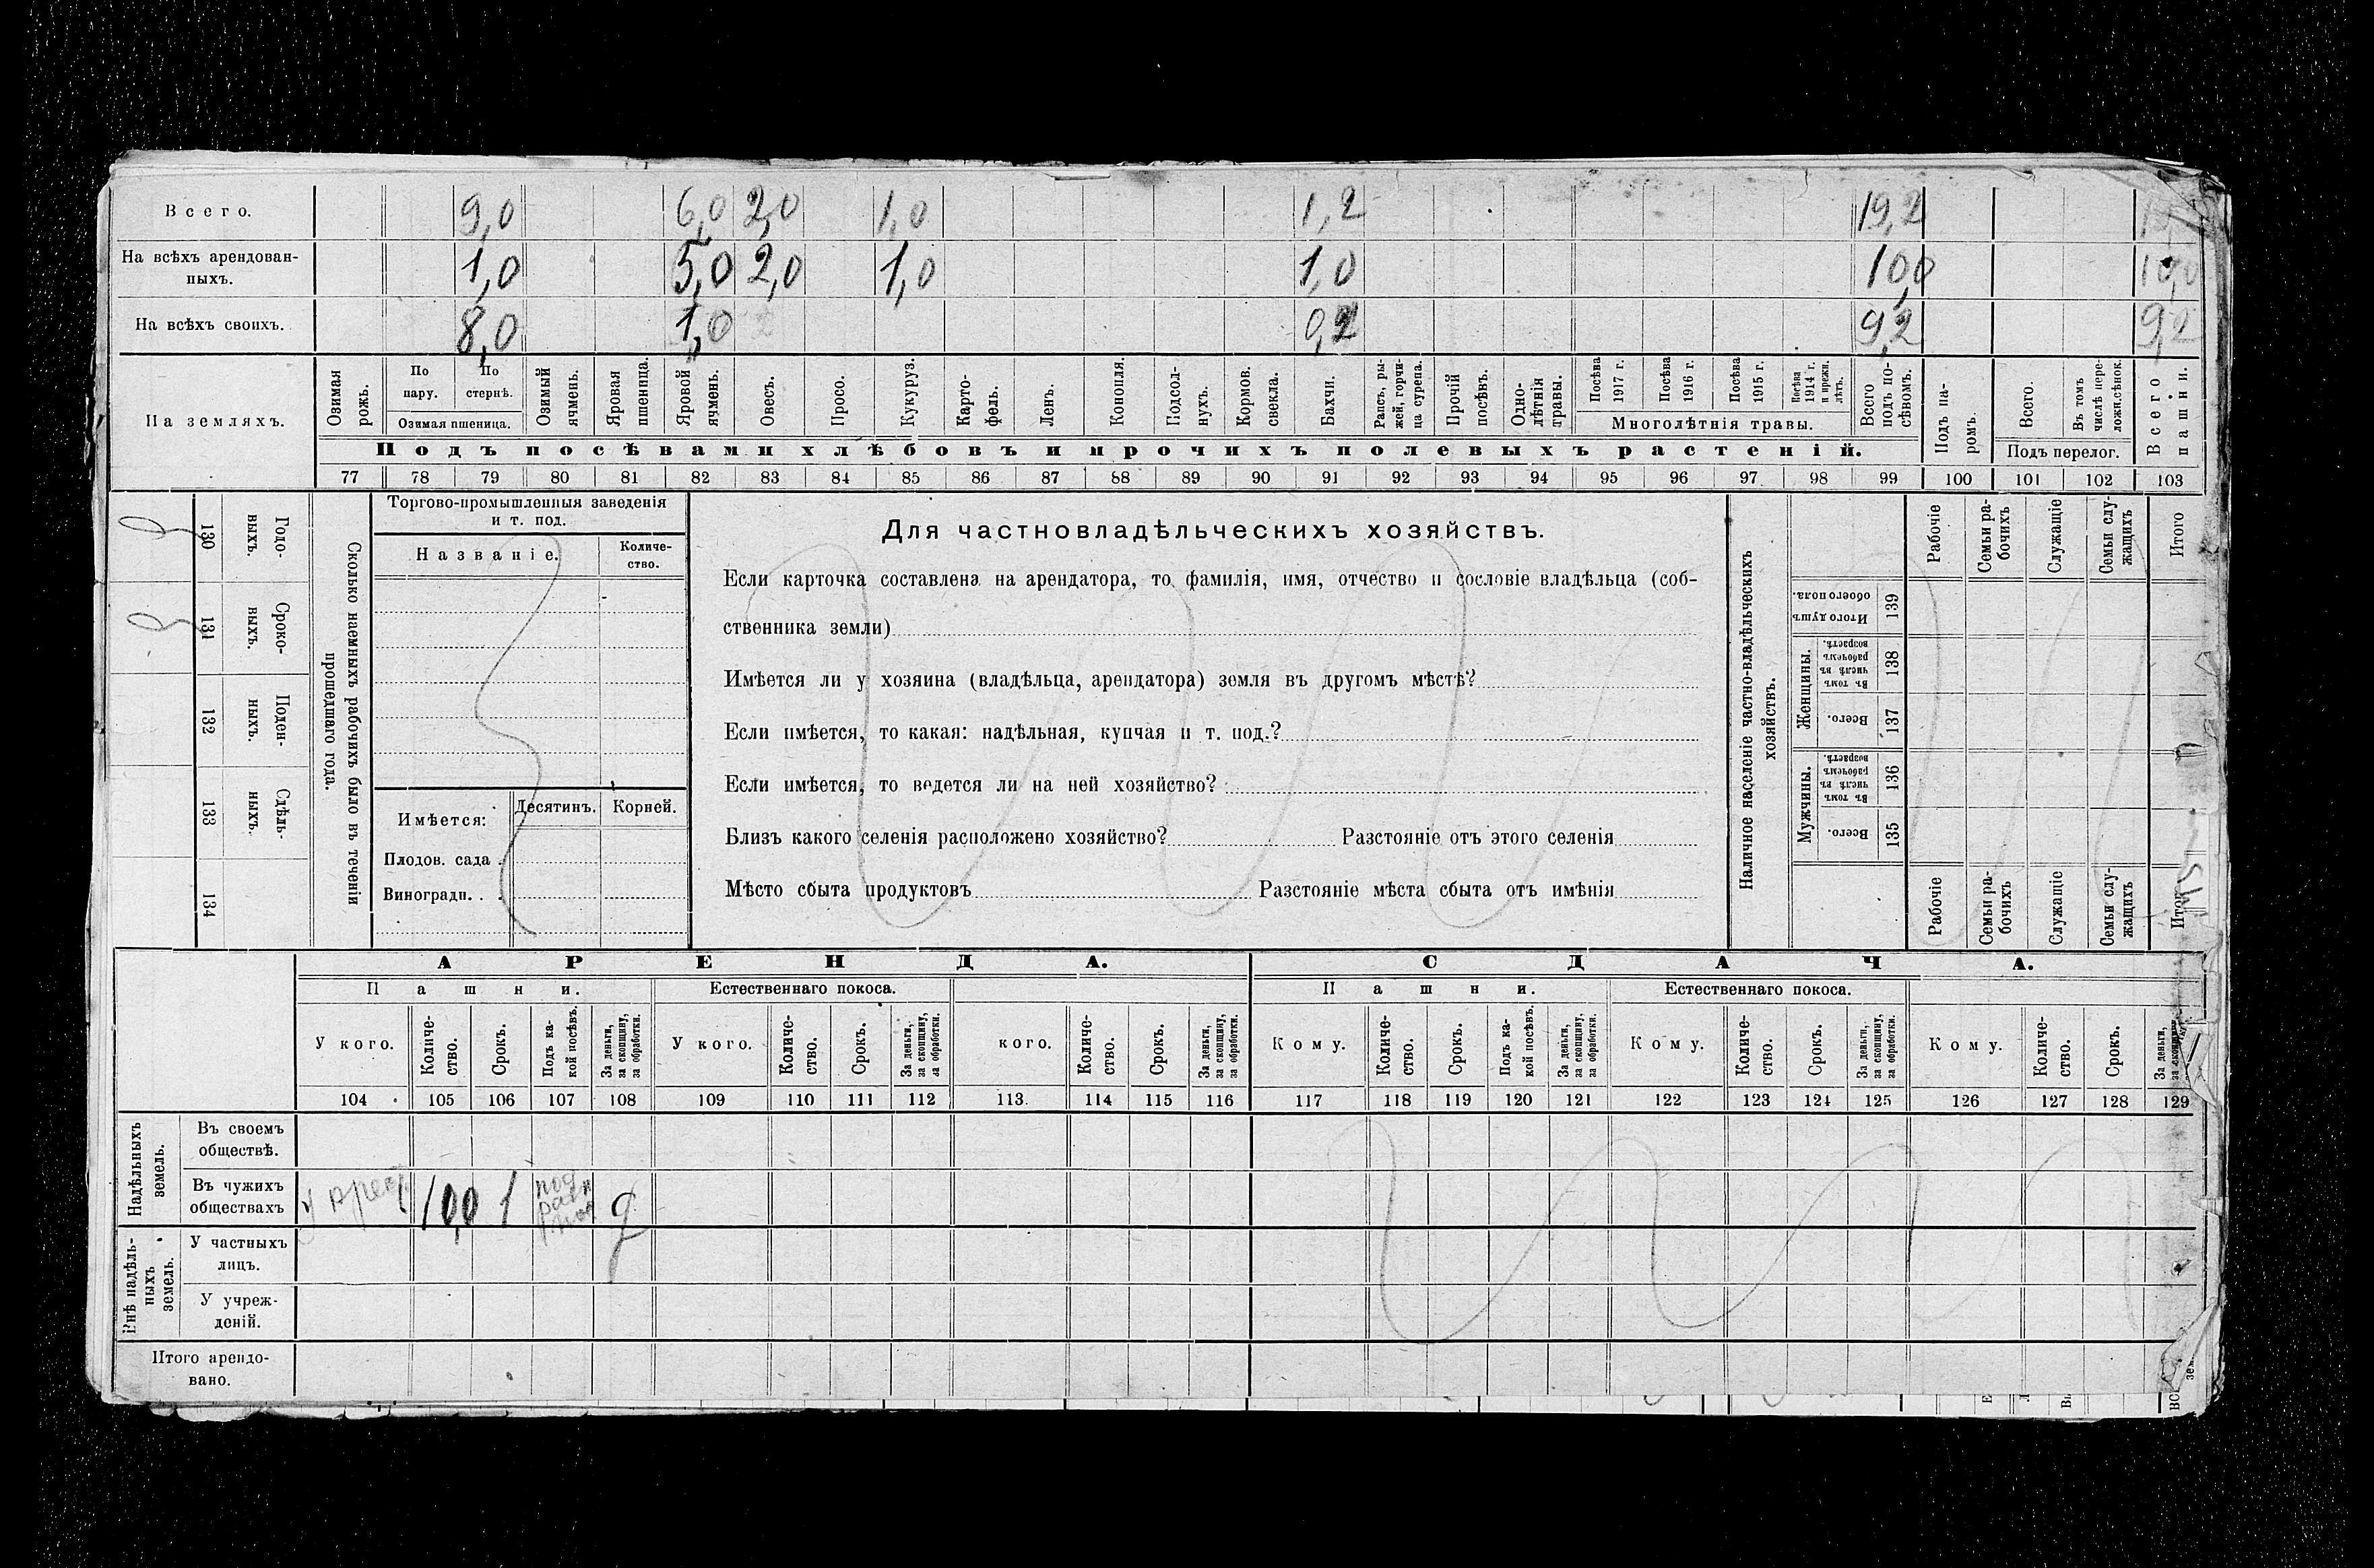 Всего. 9,0 6,0 2,0 1,0 1,2 19,2
На всѣхъ арендован-
ныхъ. 1,0 5,0 2,0 1,0 1,0 10,0 10,0
На всѣхъ своихъ. 8,0 1,0 0,2 9,2 9,2
На земляхъ.
Озимая рожь.
По пару.
По стернѣ.
Озимая пшеница.
Озимый ячмень.
Яровая пшеница.
Яровой ячмень.
Овесъ.
Просо.
Кукуруз.
Карто-
фель.
Ленъ.
Конопля.
Подсол-
нухъ.
Кормов. свекла.
Бахчи.
Рапсъ, ры-
жей, горчи-
ца сурепа.
Прочій посѣвъ.
Одно-
лѣтнія травы.
Посѣва 1917 г.
Посѣва 1916 г.
Посѣва 1915 г.
Посѣва 1914 г. и прежн. лѣтъ.
Многолѣтнія травы.
Всего подъ по-
сѣвомъ.
Подъ па-
ромъ.
Всего.
Въ томъ числѣ пере-
ложн.сѣнок.
Подъ перелог.
Всего пашни.
Подъ посѣвами хлѣбовъ и прочихъ полевыхъ растеній.
77 78 79 80 81 82 83 84 85 86 87 88 89 90 91 92 93 94 95 96 97 98 99 100 101 102 103
130 Годо-
выхъ.
131 Сроко-
выхъ.
132 Поден-
ныхъ.
133 Сдѣль-
ныхъ.
134
Сколько наемныхъ рабочихъ было въ теченіи
прошедшаго года.
Торгово-промышленныя заведенія
и т. под.
Названіе. Количе-
ство.
Имѣется: Десятинъ. Корней.
Плодов. сада .
Виноградн. . .
Для частновладѣльческихъ хозяйствъ.
Если карточка составлена на арендатора, то фамилія, имя, отчество и сословіе владѣльца (соб-
ственника земли)
Имѣется ли у хозяина (владѣльца, арендатора) земля въ другомъ мѣстѣ?
Если имѣется, то какая: надѣльная, купчая и т. под.?
Если имѣется, то ведется ли на ней хозяйство?
Близъ какого селенія расположено хозяйство? Разстояніе отъ этого селенія
Мѣсто сбыта продуктовъ Разстояніе мѣста сбыта отъ имѣнія
Наличное населеніе частно-владѣльческихъ
хозяйствъ.
Рабочіе
Семьи ра-
бочихъ
Служащіе
Семьи слу-
жащихъ
Итого
Итого душъ обоего пола. 139
Женщины.
Въ томъ числѣ въ рабочемъ возрастѣ. 138
Всего. 137
Мужчины.
Въ томъ числѣ въ рабочемъ возрастѣ. 136
Всего. 135
Рабочіе
Семьи ра-
бочихъ
Служащіе
Семьи слу-
жащихъ
АРЕНДА. СДАЧА.
Пашни. Естественнаго покоса. Пашни. Естественнаго покоса.
У кого.
Количе-
ство.
Срокъ.
Подъ ка-
кой посѣвъ.
За деньги,
за скопщину,
за обработки.
У кого.
Количе-
ство.
Срокъ.
За деньги,
за скопщину,
за обработки.
кого.
Количе-
ство.
Срокъ.
За деньги,
за скопщину,
за обработки.
Кому.
Количе-
ство.
Срокъ.
Подъ ка-
кой посѣвъ.
За деньги,
за скопщину,
за обработки.
Кому.
Количе-
ство.
Срокъ.
За деньги,
за скопщину,
за обработки.
Кому.
Количе-
ство.
Срокъ.
За деньги,
104 105 106 107 108 109 110 111 112 113. 114 115 116 117 118 119 120 121 122 123 124 125 126 127 128 129
Надѣльныхъ
земель.
Въ своемъ
обществѣ.
Въ чужихъ
обществахъ 10,0 1
Внѣ надѣль-
ныхъ
земель.
У частныхъ
лицъ.
У учреж-
деній.
Итого арендо-
вано.